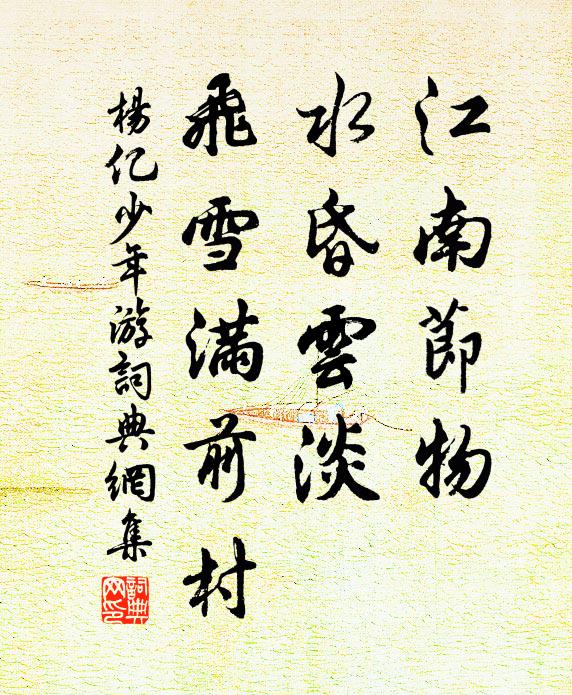 江南節物
水昏雲淡
飛雪滿前村
楊亿少年游詞典網集
詞典網印